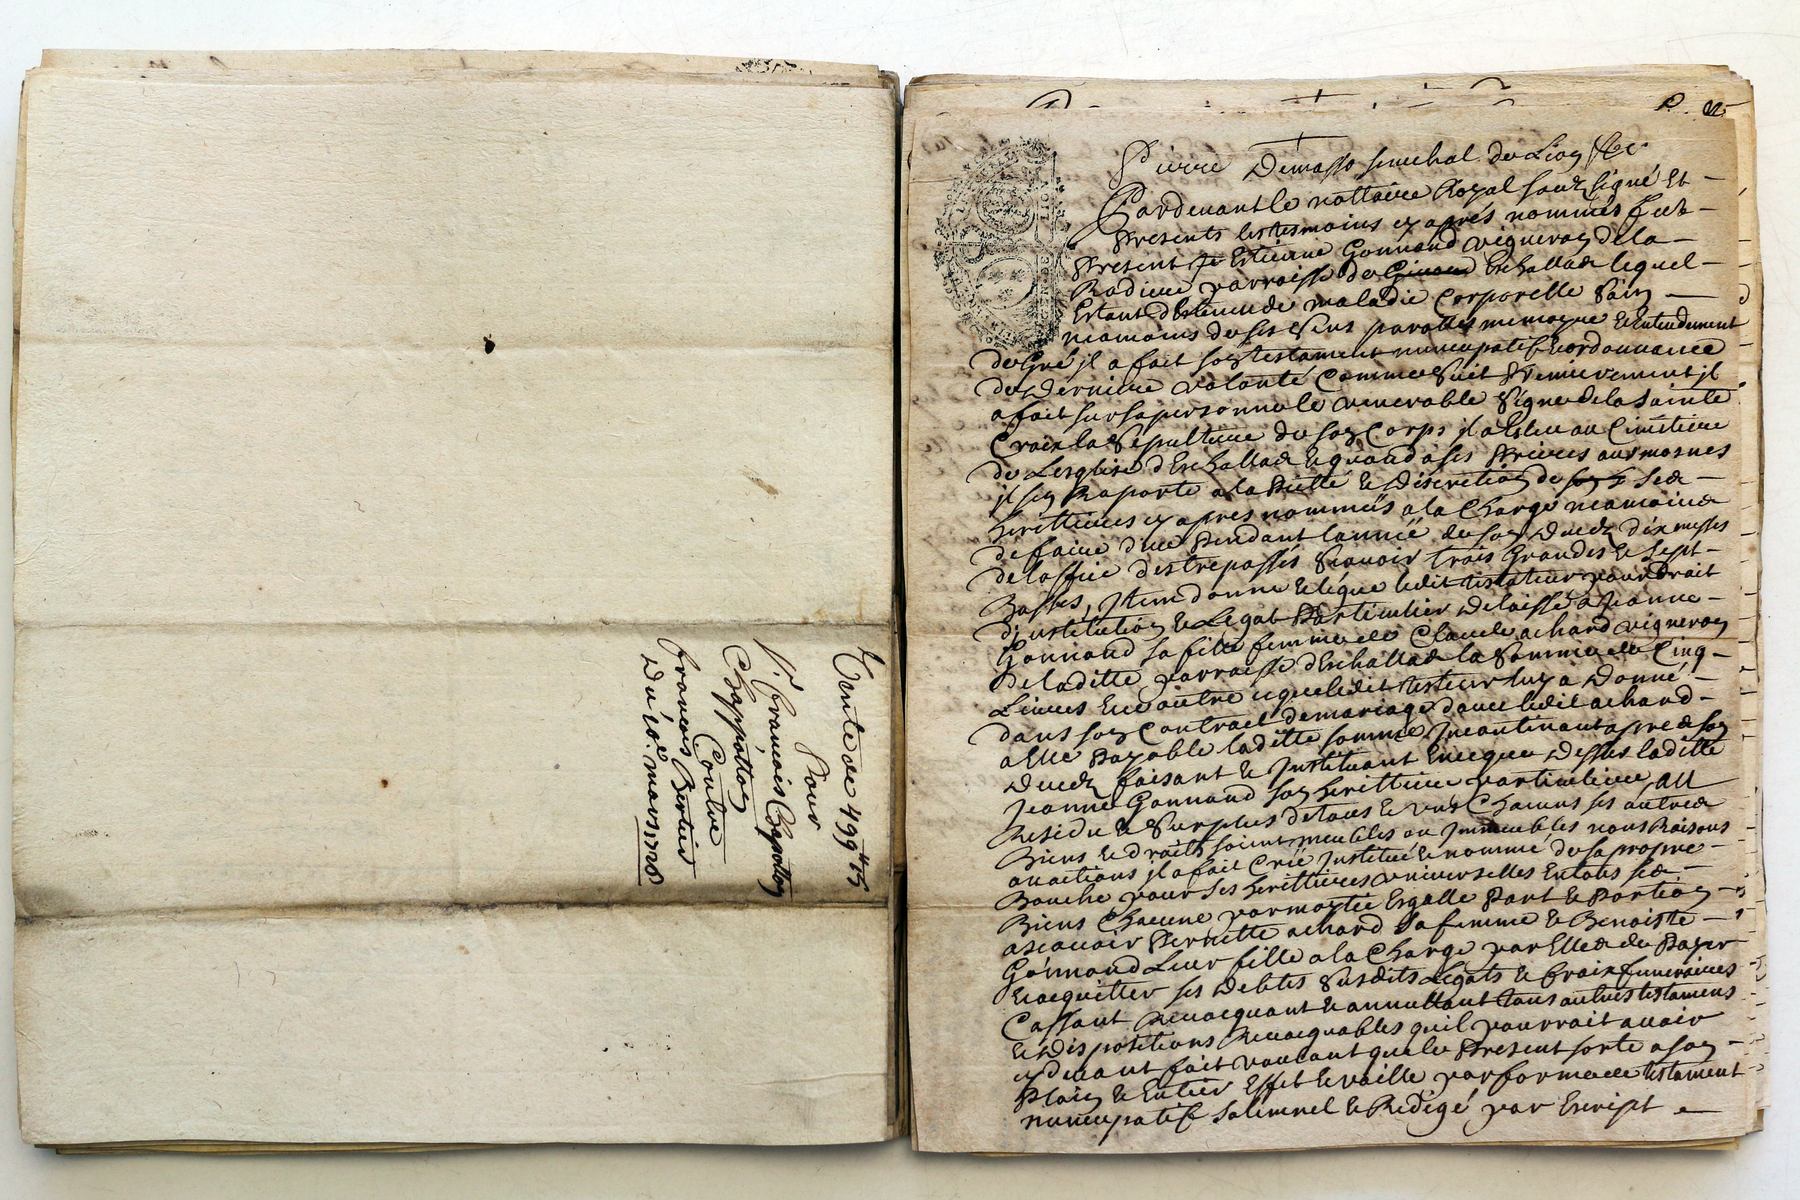 Vente de 499# 15
Pour
Sr. francois Chapotton
Chappotton
Contre
francois Bertier
Du 10e. mars 1728
P. n
Pierre Demasso senechal de Lion &c.
Pardeuant le nottaire Royal souz signé Et
presents les tesmoins cy aprés nommés feut
present Estienne Gonnand vigneron de la
Radiere parroisse de Givord Eschallas lequel
Estant detenu de maladie Corporelle sain
neamoins de ses sens parolles memoyre & Entendement
de Gré jl a fait son testament nuncupatif & ordonnance
de derniere volonté Comme suit premierement jl
a fait sur sa personne le venerable signe de la sainte
Croix la sepulture de son Corps jl a Esleu au Cimetiere
de Lesglise d'Eschallas & quand a ses prieres aumosnes
jl sen Raporte a la pietté & discretion de ses
herittieres cy apres nommées a la Charge neamoins
de faire dire pendant lannée de son decez dix messes
de loffice des trepassés scauoir trois Grandes & sept
Basses, jtem donne & legue ledit testateur par droit
d'jnstitution & Legat particulier delaissé a Jeanne
Gonnand sa fille femme de Claude achard vigneron
de laditte parroisse d'Eschallas la somme de Cinq
Liures En outre ce que ledit testateur luy a Donné
dans son Contract de mariage auec ledit achard
a Elle payable laditte somme jncontinant apres son
decez faisant & jnstituant En ce que dessus laditte
Jeanne Gonnand son herittiere particuliere, au
Residu & surplus de tous & vns Chacuns ses autres
Biens & droits soient meubles ou jmmeubles noms Raisons
ou actions jl a fait Créé jnstitué & nommé de sa propre
Bouche pour ses herittieres vniverselles En tous ses
Biens Chacune par moytié Esgalle part & portion
ascauoir pernette achard sa femme & Benoiste
Gonnand Leur fille a la Charge par Elles de payer
& acquitter ses debtes susdits Legats & fraix funeraires
Cassant Reuocquant & annullant tous autres testamens
& dispositions Reuocquables quil pourroit auoir
cy deuant fait voulant que le present sorte a son
plain & Entier Effet & vaille par forme de testament
nuncupatif solemnel & Redigé par Escript